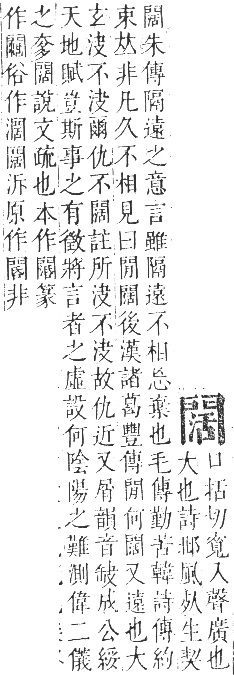 闊
口括切寬入聲廣也
大也詩邶風死生契
闊朱傳隔遠之意言雖隔遠不相忘棄也毛傳勤苦韓詩傳約
束𠀤非凡久不相見曰閒闊後漢諸葛豐傳閒何闊又遠也大
玄沒不沒爾仇不闊註所沒不沒故仇近又屑韻音缺成公綏
天地賦豈斯事之有徵將言者之虛設何陰陽之難測偉二儀
之奓闊說文疏也本作闊篆
作俗作濶闊泝原作非